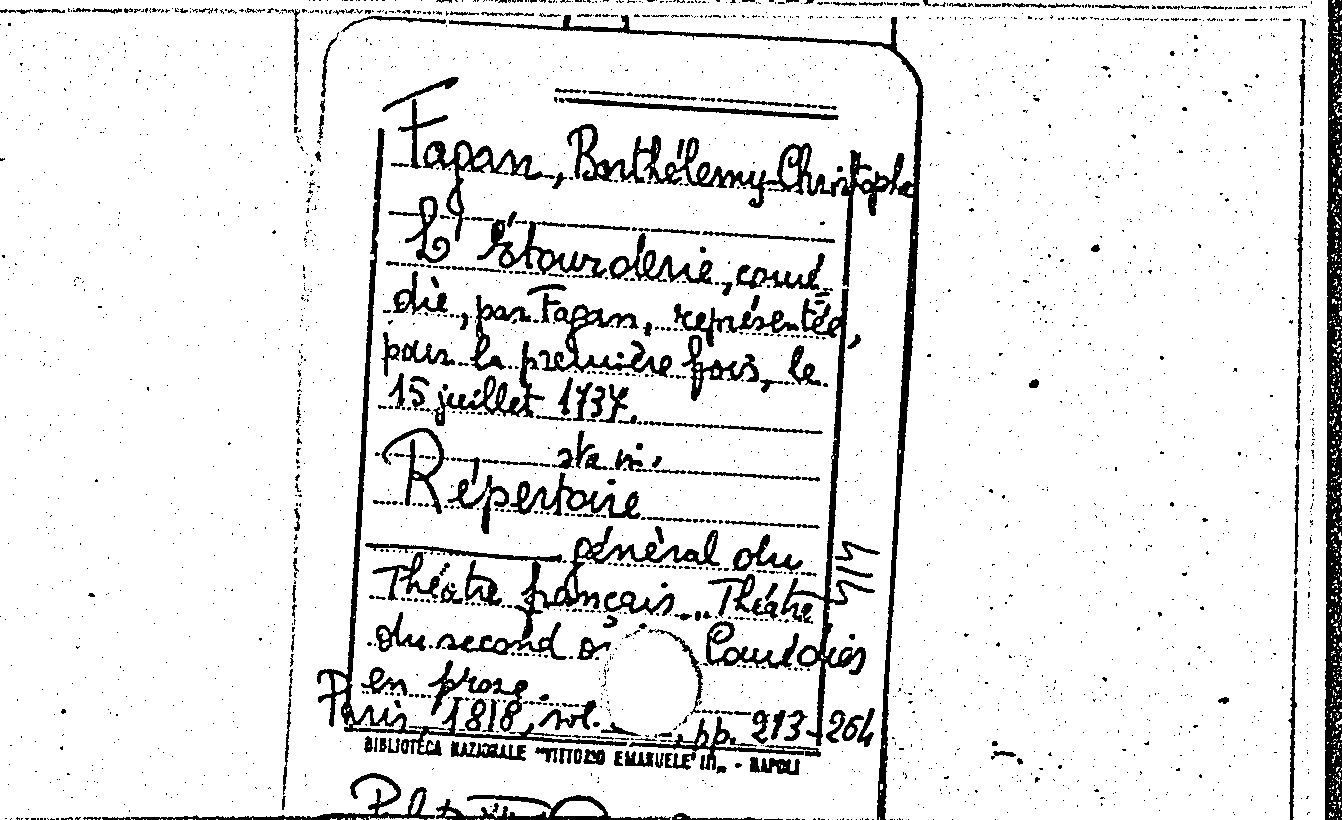 Fagan, Barthélemy-Christophe
L'Étourderie, comé
die, par Fagan, représentée,
pour la première fois, le
15 juillet 1737.
sta in:
Répertoire
général du
Théâtre français.. Théâtre
du second or Comédies
en prose.
Paris, 1818, vol. , pp. 213-264
BIBLIOTECA NAZIONALE "VITTORIO EMANUELE III„ - NAPOLI